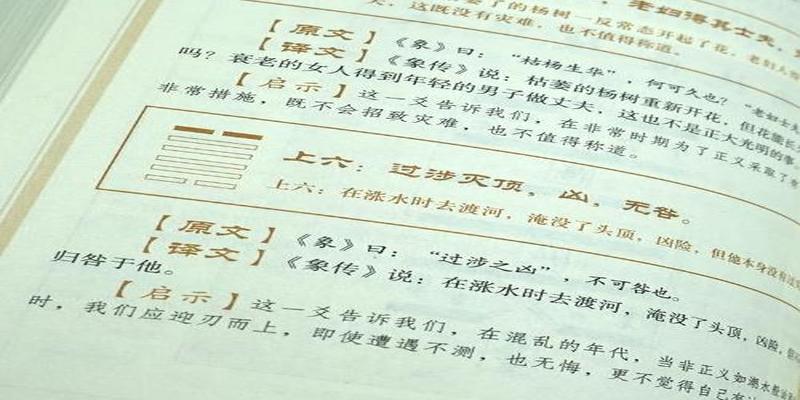 老妇得其士夫，
了的杨树一反常态开起了花，老妇人
这既没有灾难，也不值得称道。
【原文】《象》曰：“枯杨生华”，何可久也？“老妇士夫
【译文】《象传》说：枯萎的杨树重新开花，但花能长
吗？衰老的女人得到年轻的男子做丈夫，这也不是正大光明的事
【启示】这一爻告诉我们，在非常时期为了正义采取了
非常措施，既不会招致灾难，也不值得称道。
上六：过涉灭顶，凶，无咎。
上六：在涨水时去渡河，淹没了头顶，凶险，但他本身没有过
【原文】《象》曰：“过涉之凶”，不可咎也。
【译文】《象传》说：在涨水时去渡河，淹没了头顶，凶险，
归咎于他。
【启示】这一爻告诉我们，在混乱的年代，当非正义如潮水般
时，我们应迎刃而上，即使遭遇不测，也无悔，更不觉得自己有